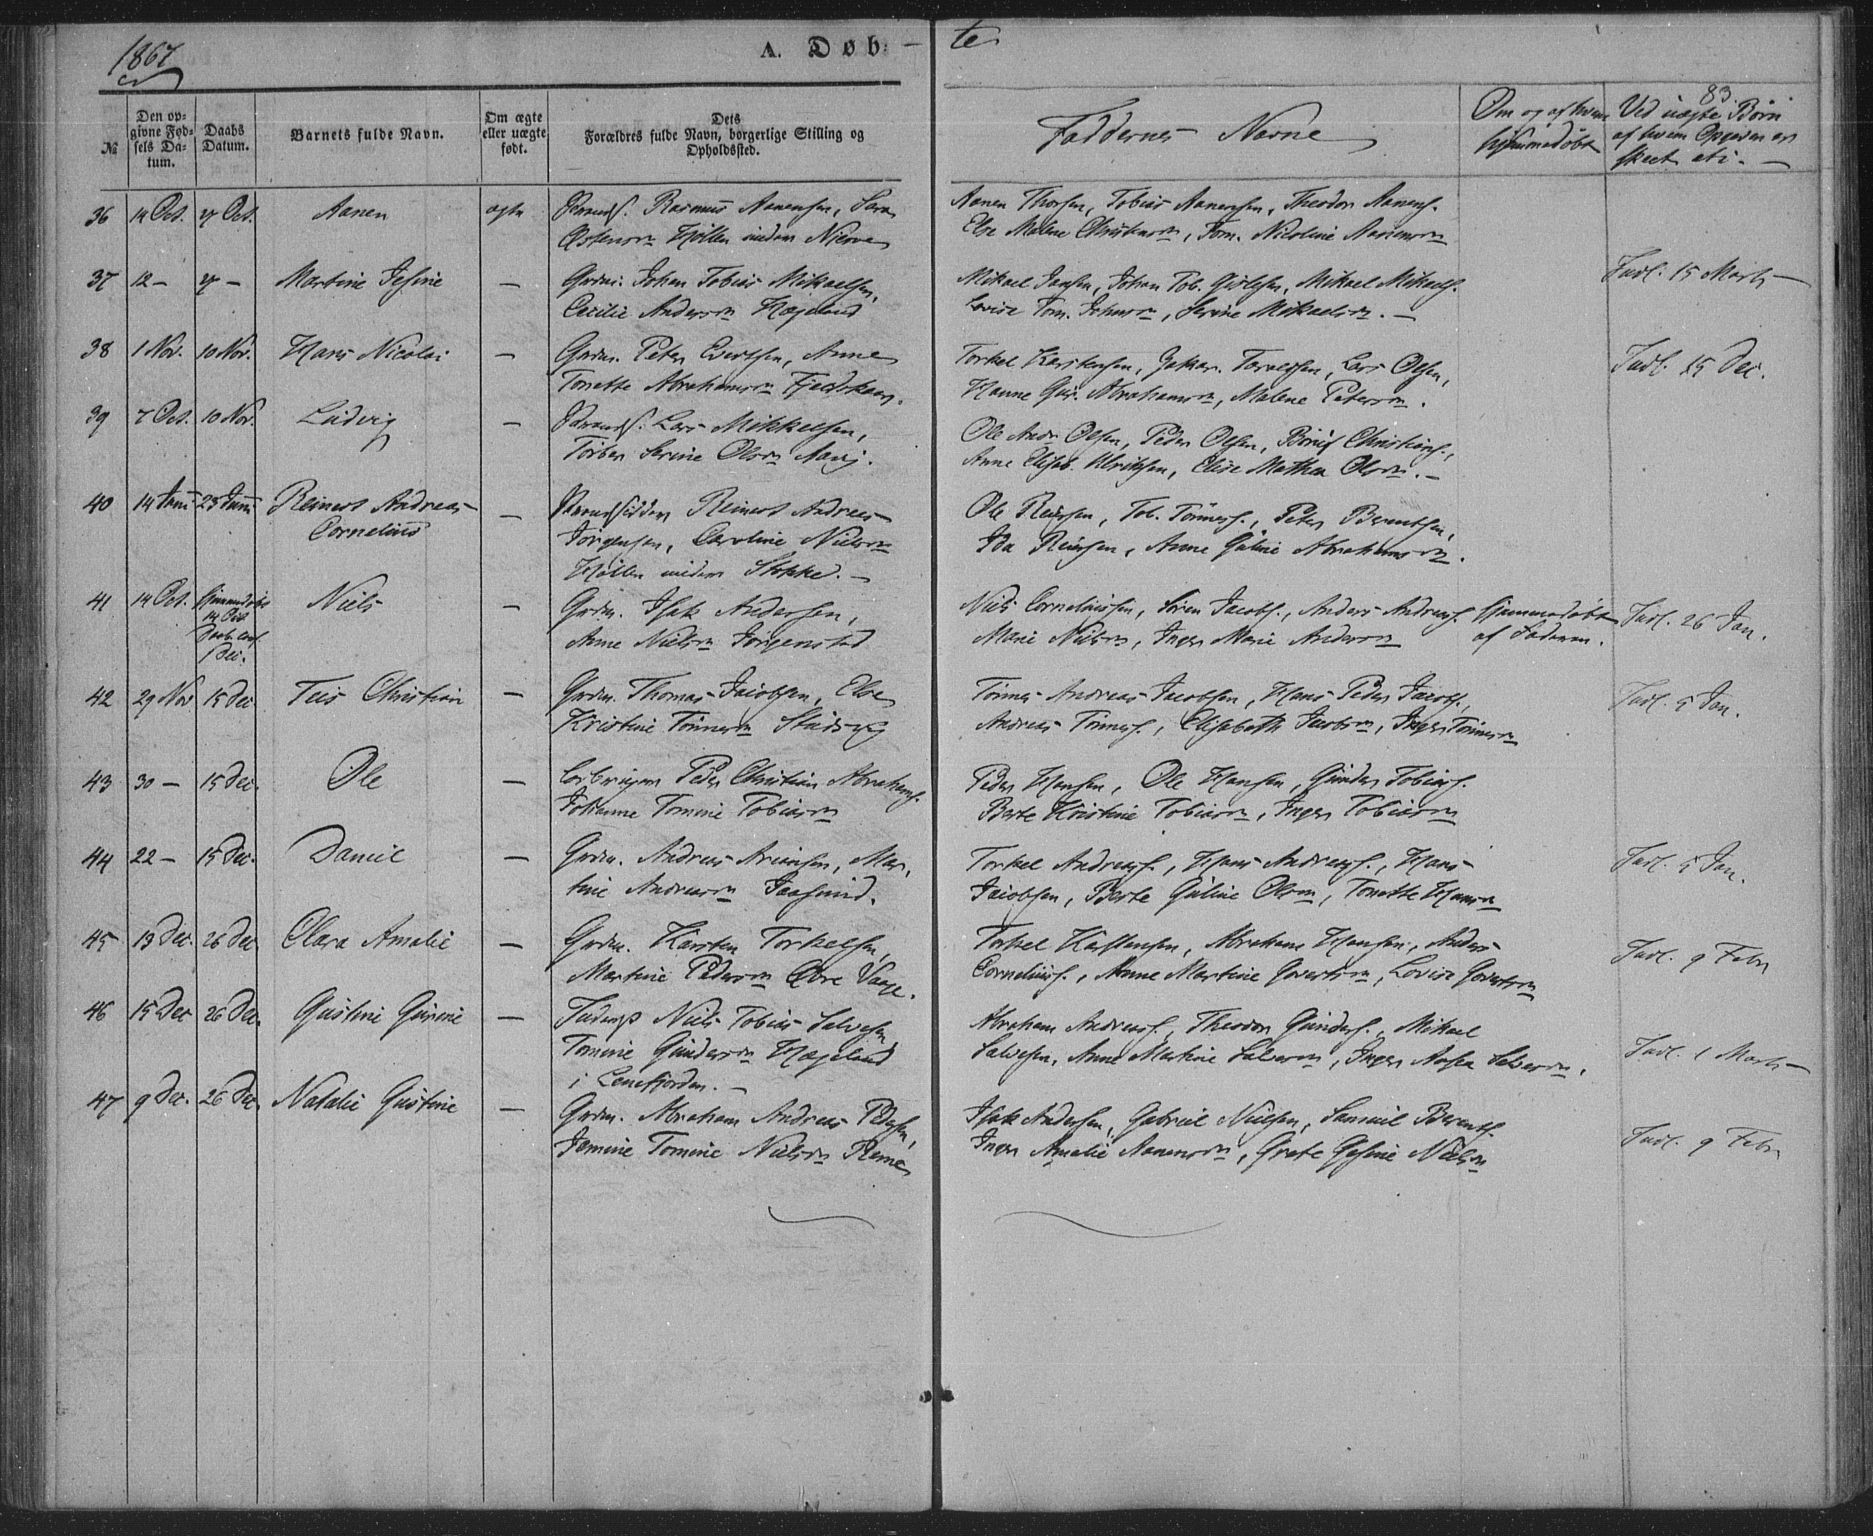 1867
A. Døb-
te
83.
№
Den op-
givne Fød-
sels Da-
tum.
Daabs
Datum.
Barnets fulde Navn.
Om ægte
eller uægte
født.
Dets
Forældres fulde Navn, borgerlige Stilling og
Opholdssted.
Faddernes Navne
Om og af hvem
hjemmedøbt
Ved uægte Børn
af hvem Opgaven er
skeet etc. —
36 14 Oct. 27 Oct. Aanen ægte Strands. Rasmus Aanensen, Sara
Aanen Thorsen, Tobias Aanensen, Theodor Aanens.
Else Malene Christensn, Tom. Nicoline
37 12 — 27 — Martine Jesine — Grdm. Johan Tobias Mikaelsen,
Cecilie Andersn Hægeland
Mikael Jansen, Johan Tob. Mikael Mikaels.
Lovise Tom. Johnsn, Serine Mikaelsn. —
Indl. 15 Marts —
38 1 Nov. 10 Nov. Hans Nicolai — Grdm. Peter Evertsen, Anne
Tonette Abrahamsn
Torkel Karstensen, Lars Olsen,
Hanne Gur. Abrahamsn, Malene Petersn.
Indl. 15 Dec.
39 7 Oct. 10 Nov. Ludvig — Strands. Lars Mikkelsen,
Torber Serine Olsn
Ole Andr. Olsen, Peder Olsen, Christians.,
Anne Elisab. Ulriksen, Elise Mathea Olsn. —
40 14 Juni 23 Juni Reinert Andreas
Cornelius — Strandsidder Reinert Andreas
Jörgensen, Caroline Nielsn
Hällen under Stokke. —
Ole Reiersen, Tob. Tönnes., Peter Berentsen,
Ida Reiersen, Anne Guline Abrahamsn.
41 14 Oct. Hjemmedøbt
14 Oct
Dec. Niels — Grdm. Isak Andersen,
Anne Nielsn Jörgenstad
Niels Corneliussen, Sören Jacobs., Anders Andreas.
Marie Nielsn, Inger Marie Andersn
Hjemmedøbt
af Faderen.
Indl. 26 Jan.
42 29 Nov 15 Dec Teis Christian — Grdm. Thomas Jacobsen, Else
Kristine Tönnesn
Tönnes Andreas Jacobsen, Hans Peder Jacobs.,
Andreas Tönnes., Elisabeth Jacobsn, Inger Tönnesn
Indl. 5 Jan.
43 30 — 15 Dec. Ole — Peder Christian Abrahams.
Johanne Tomine Tobiasn
Peder Hansen, Ole Hansen, Gunder Tobias.
Berte Kristine Tobiasn, Inger Tobiasn
44 22 — 15 Dec. Daniel — Grdm. Andreas Mar-
tine Andreasn
Torkel Andreas., Hans Andreas., Hans
Jacobsen, Berte Guline Olsn, Tonette Hansn
Indl. 5 Jan.
45 13 Dec. 26 Dec Clara Amalie — Grdm. Karsten Torkelsen,
Martine Pedersn Øvre Vaage.
Torkel Karstensen, Abraham Hansen, Anders
Cornelius., Anne Martine Govertsn, Lovise Govertsn
Indl. 9 Febr
46 15 Dec 26 Dec. Gustine Gurine — Inderst Niels Tobias Salvesen
Tomine Gundersn Hægeland
i Lenefjorden. —
Abraham Andreas., Theodor Gunders., Mikael
Salvesen, Anne Martine Salvesn, Inger Aasta Salvesn.
Indl. 1 Marts —
47 9 Dec. 26 Dec. Natalie Gustine — Grdm. Abraham Andreas Pedersen,
Jemine Tomine Nielsn
Isak Andersen, Gabriel Nielsen, Samuel Berents.
Inger Amalie Aanensn, Grete Gesine Nielsn
Indl. 9 Febr